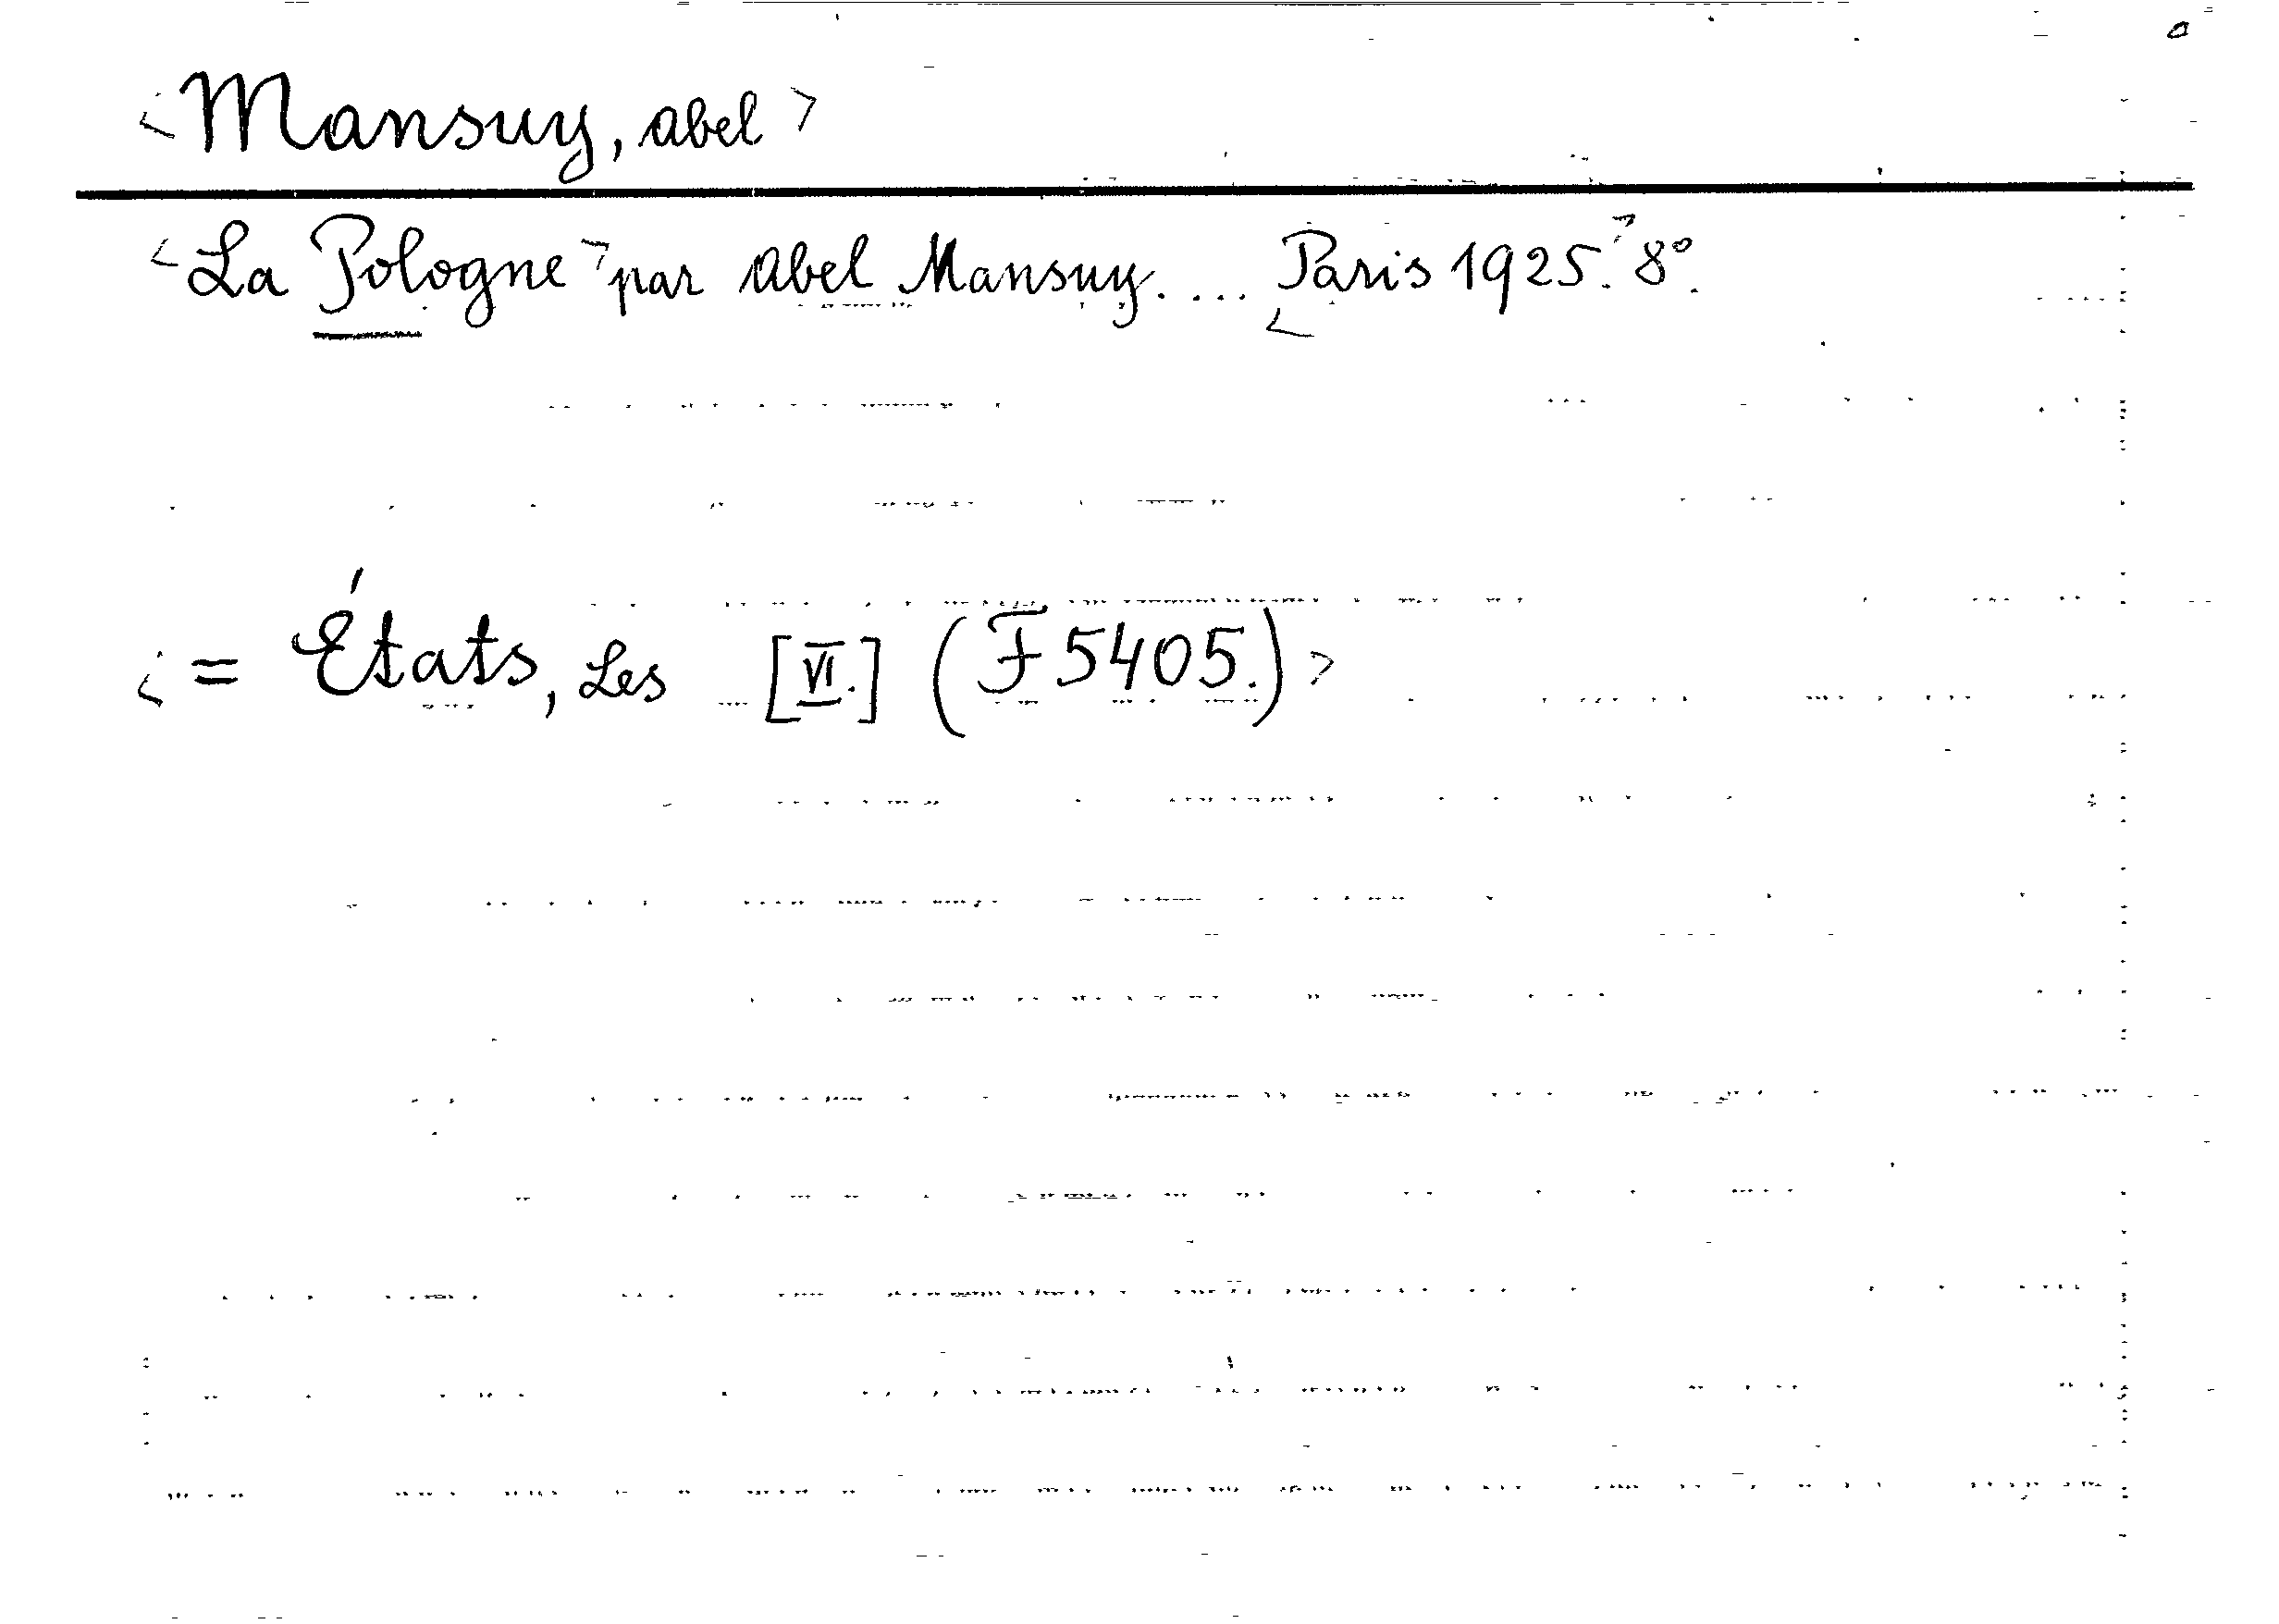 <Mansuy, Abel>
<La Pologne> par Abel Mansuy. ... <Paris 1925.> 8°.
<= États, Les [VI.] (F 5405.)>